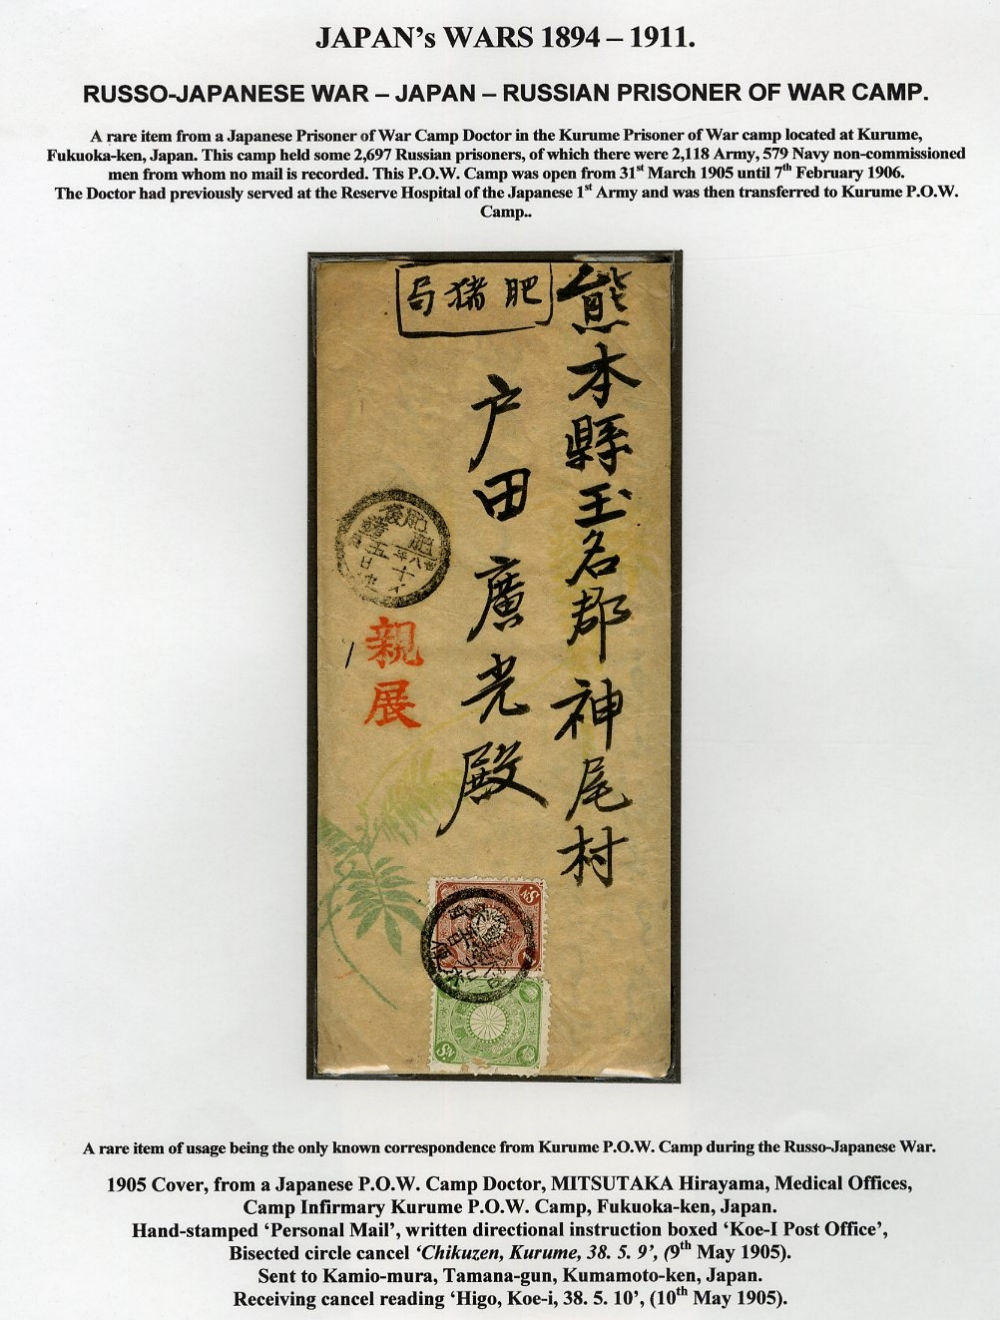 JAPAN's WARS 1894 – 1911.
RUSSO-JAPANESE WAR – JAPAN – RUSSIAN PRISONER OF WAR CAMP.
A rare item from a Japanese Prisoner of War Camp Doctor in the Kurume Prisoner of War camp located at Kurume,
Fukuoka-ken, Japan. This camp held some 2,697 Russian prisoners, of which there were 2,118 Army, 579 Navy non-commissioned
men from whom no mail is recorded. This P.O.W. Camp was open from 31st March 1905 until 7th February 1906.
The Doctor had previously served at the Reserve Hospital of the Japanese 1st Army and was then transferred to Kurume P.O.W.
Camp..
熊本縣玉名郡神尾村
肥猪局
戸田廣光殿
親展
A rare item of usage being the only known correspondence from Kurume P.O.W. Camp during the Russo-Japanese War.
1905 Cover, from a Japanese P.O.W. Camp Doctor, MITSUTAKA Hirayama, Medical Offices,
Camp Infirmary Kurume P.O.W. Camp, Fukuoka-ken, Japan.
Hand-stamped ‘Personal Mail’, written directional instruction boxed ‘Koe-I Post Office’,
Bisected circle cancel ‘Chikuzen, Kurume, 38. 5. 9’, (9th May 1905).
Sent to Kamio-mura, Tamana-gun, Kumamoto-ken, Japan.
Receiving cancel reading ‘Higo, Koe-i, 38. 5. 10’, (10th May 1905).